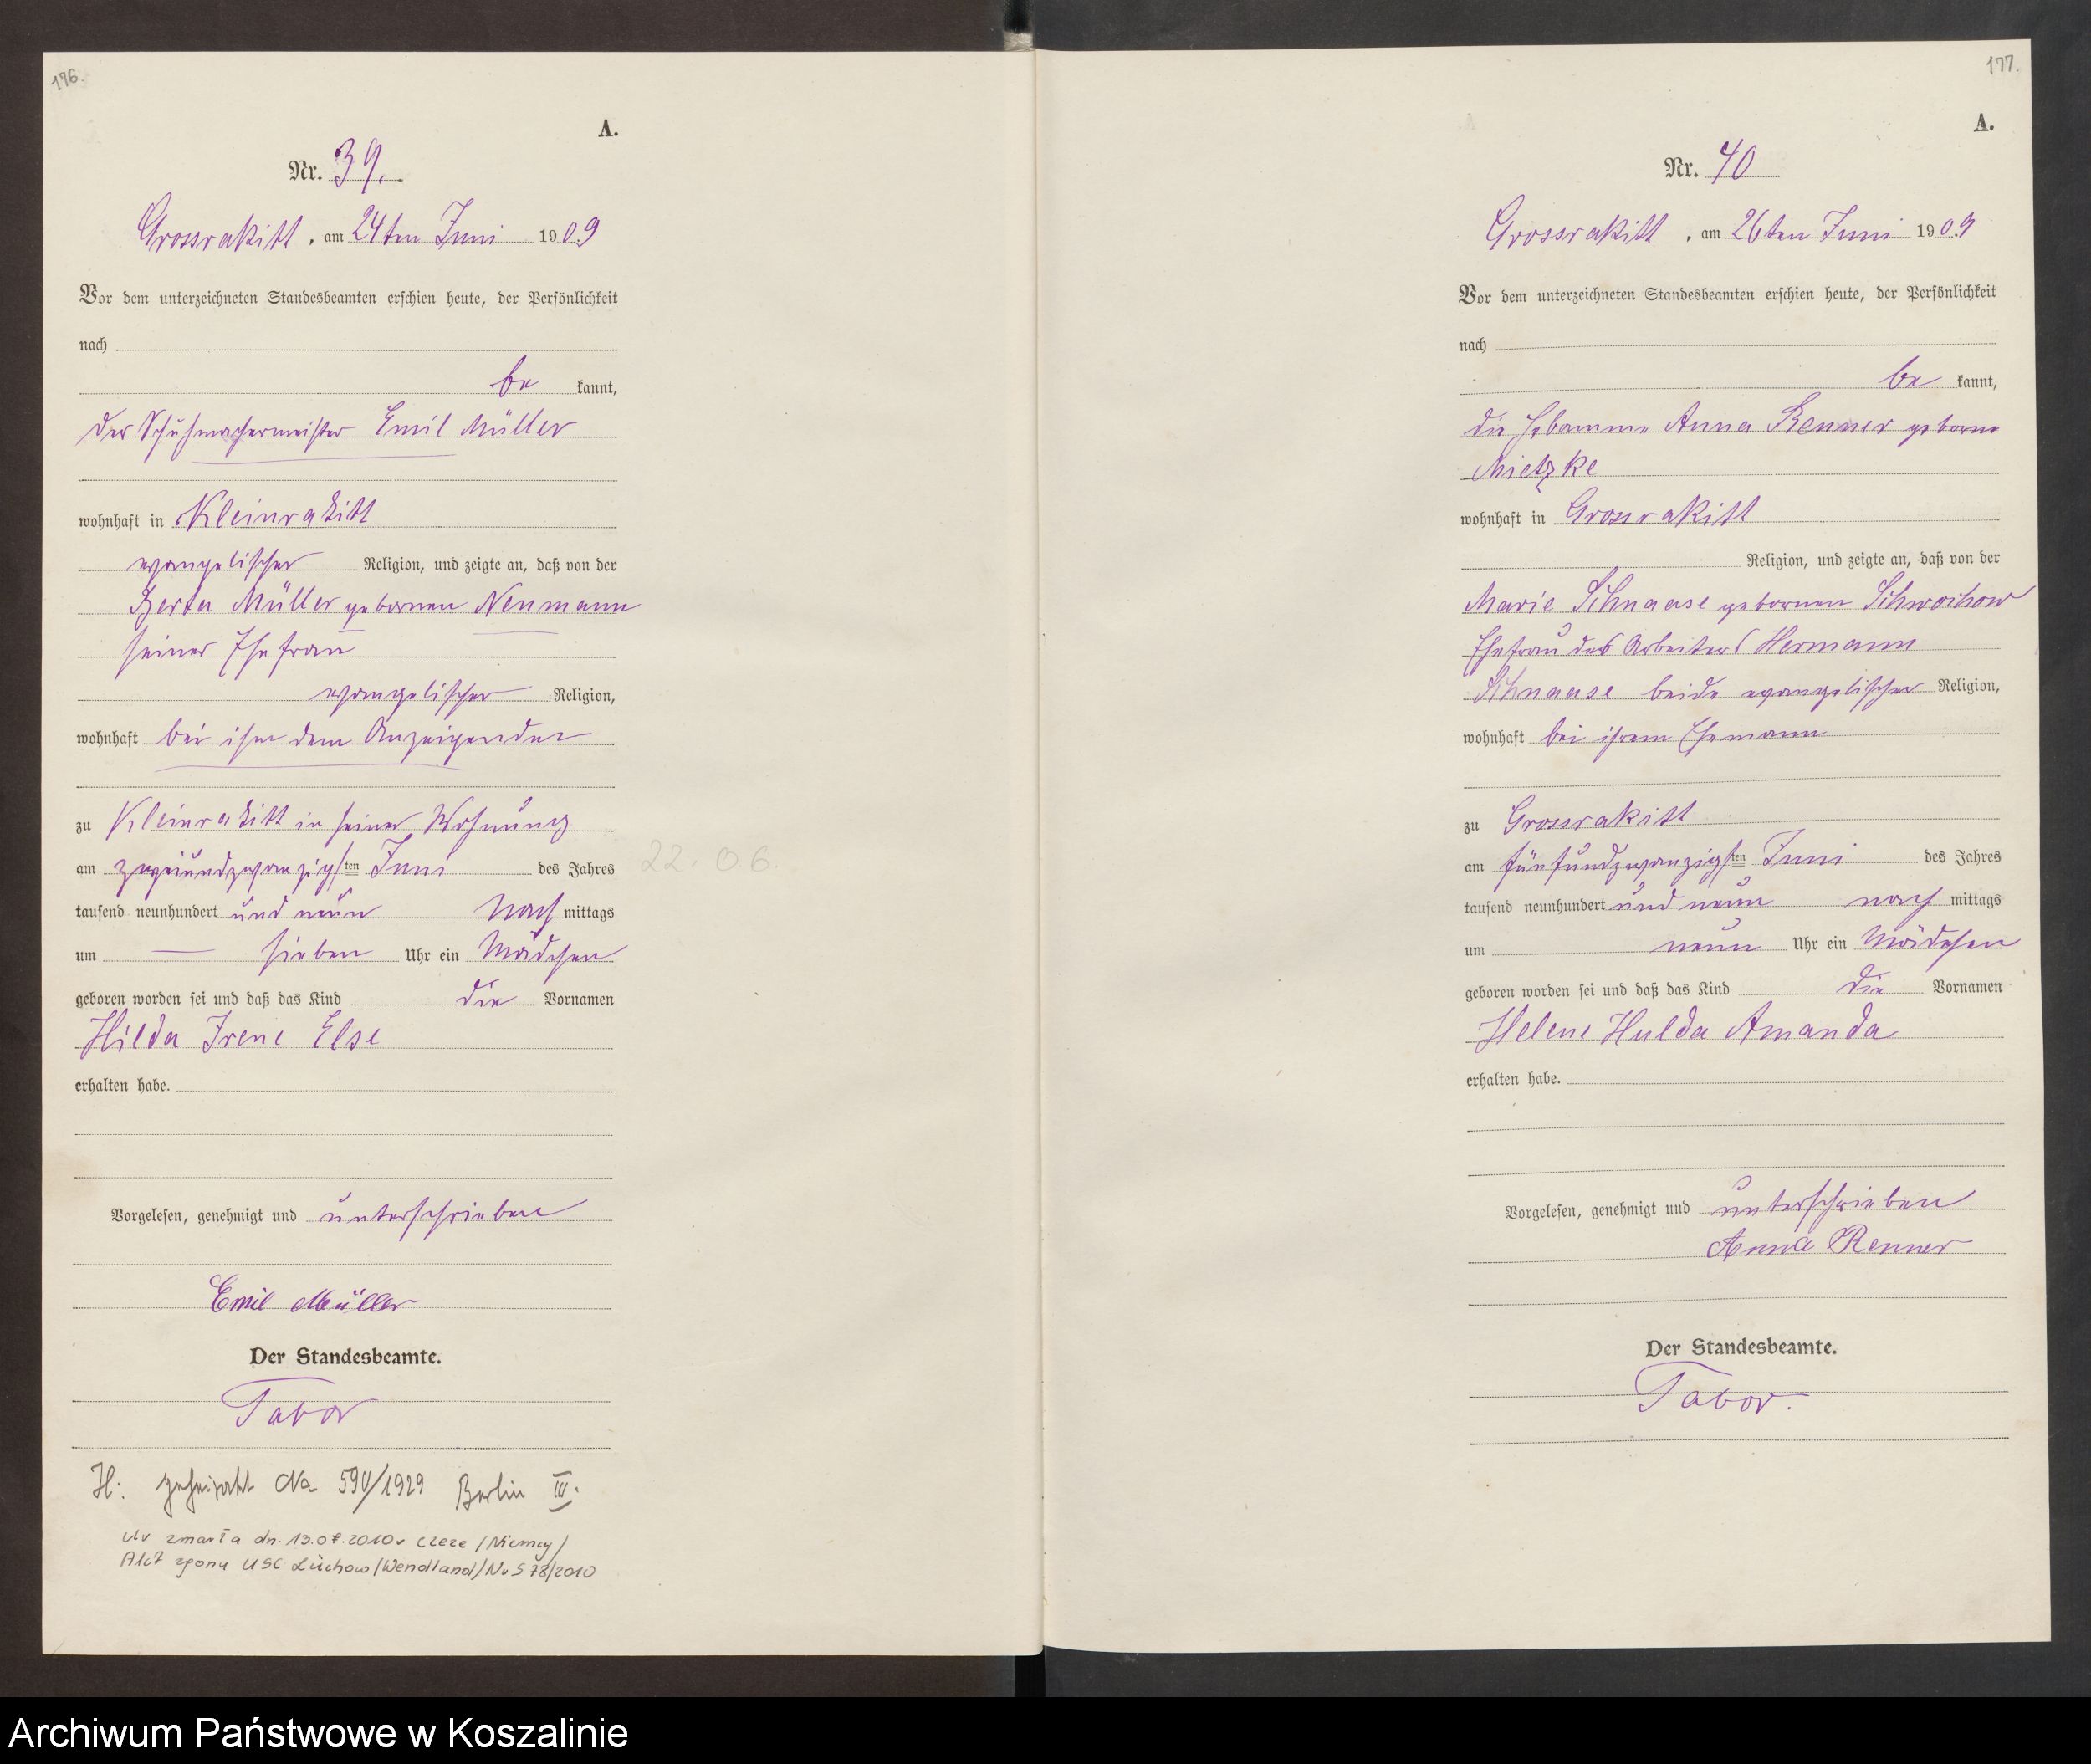 176.
A.
Nr. 39.
Grossrakitt, am 24ten Juni 1909
Vor dem unterzeichneten Standesbeamten erschien heute, der Persönlichkeit
nach
be kannt,
der Schuhmachermeister Emil Müller
wohnhaft in Kleinrakitt
evangelischer Religion, und zeigte an, daß von der
Berta Müller gebornen Neumann
seiner Ehefrau
evangelischer Religion,
wohnhaft bei ihm dem Anzeigenden
zu Kleinrakitt in seiner Wohnung
am zweiundzwanzigsten Juni des Jahres
22.06.
tausend neunhundert und neun Nach mittags
um — sieben Uhr ein Mädchen
geboren worden sei und daß das Kind die Vornamen
Hilda Irene Else
erhalten habe.
Vorgelesen, genehmigt und unterschrieben
Emil Müller
Der Standesbeamte.
Tabor
H: geheiratet No 590/1929 Berlin III.
zmarła dn. 13.07.2010 /Niemcy/
Akt zgonu USC Lüchow/Wendland/Nr S 78/2010
177.
A.
Nr. 40
Grossrakitt, am 26ten Juni 1909
Vor dem unterzeichneten Standesbeamten erschien heute, der Persönlichkeit
nach
be kannt,
die Hebamme Anna Renner geborne
Mietzke
wohnhaft in Grossrakitt
Religion, und zeigte an, daß von der
Marie Schnaase gebornen Schwochow
Ehefrau des Arbeiters Hermann
Schnaase beide evangelischer Religion,
wohnhaft bei ihrem Ehemann
zu Grossrakitt
am fünfundzwanzigsten Juni des Jahres
tausend neunhundert und neun nach mittags
um neun Uhr ein Mädchen
geboren worden sei und daß das Kind die Vornamen
Helene Hulda Amanda
erhalten habe.
Vorgelesen, genehmigt und unterschrieben
Anna Renner
Der Standesbeamte.
Tabor.
Archiwum Państwowe w Koszalinie